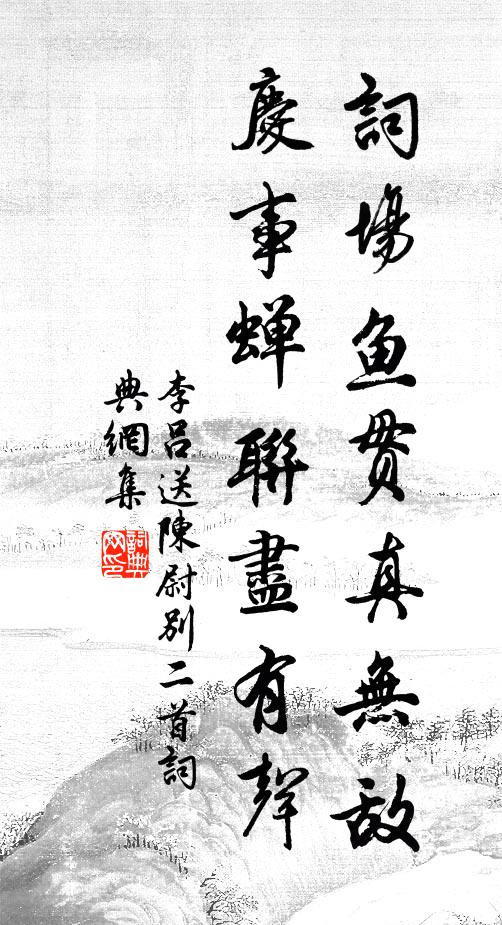 詞場魚貫真無敵
慶事蟬聯盡有聲
李呂送陳尉別二首詞
典網集
詞典
网印